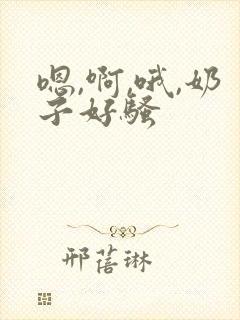 嗯,啊,哦,奶
子好骚
邢蓓琳